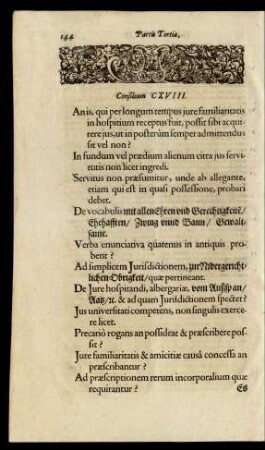 144 Partis Tertiæ,
Consilium CXVIII.
An is, qui per longum tempus jure familiaritatis
in hospitium receptus fuit, possit sibi acqui-
rere jus, ut in posterùm semper admittendus
sit vel non?
In fundum vel prædium alienum citra jus servi-
tutis non licet ingredi.
Servitus non præsumitur, unde ab allegante,
etiam qui est in quasi possessione, probari
debet.
De vocabulis mit allen Ehren und Gerechtigkeitē/
Ehehafften/ Zwing vnnd Bann/ Gewalt-
samt.
Verba enunciativa quatenus in antiquis pro-
bent?
Ad simplicem Jurisdictionem, zur Nidergericht-
lichen Obrigkeit/ quæ pertineant.
De Jure hospitandi, albergariæ, vom
&c. & ad quam Jurisdictionem spectet?
Jus universitati competens, non singuli exer-
cere licet.
Precariò rogans an possideat & præscribere pos-
sit?
Jure familiaritatis & amicitiæ causâ concessa an
præscribantur?
Ad præscriptionem rerum incorporalium quæ
requirantur? Es